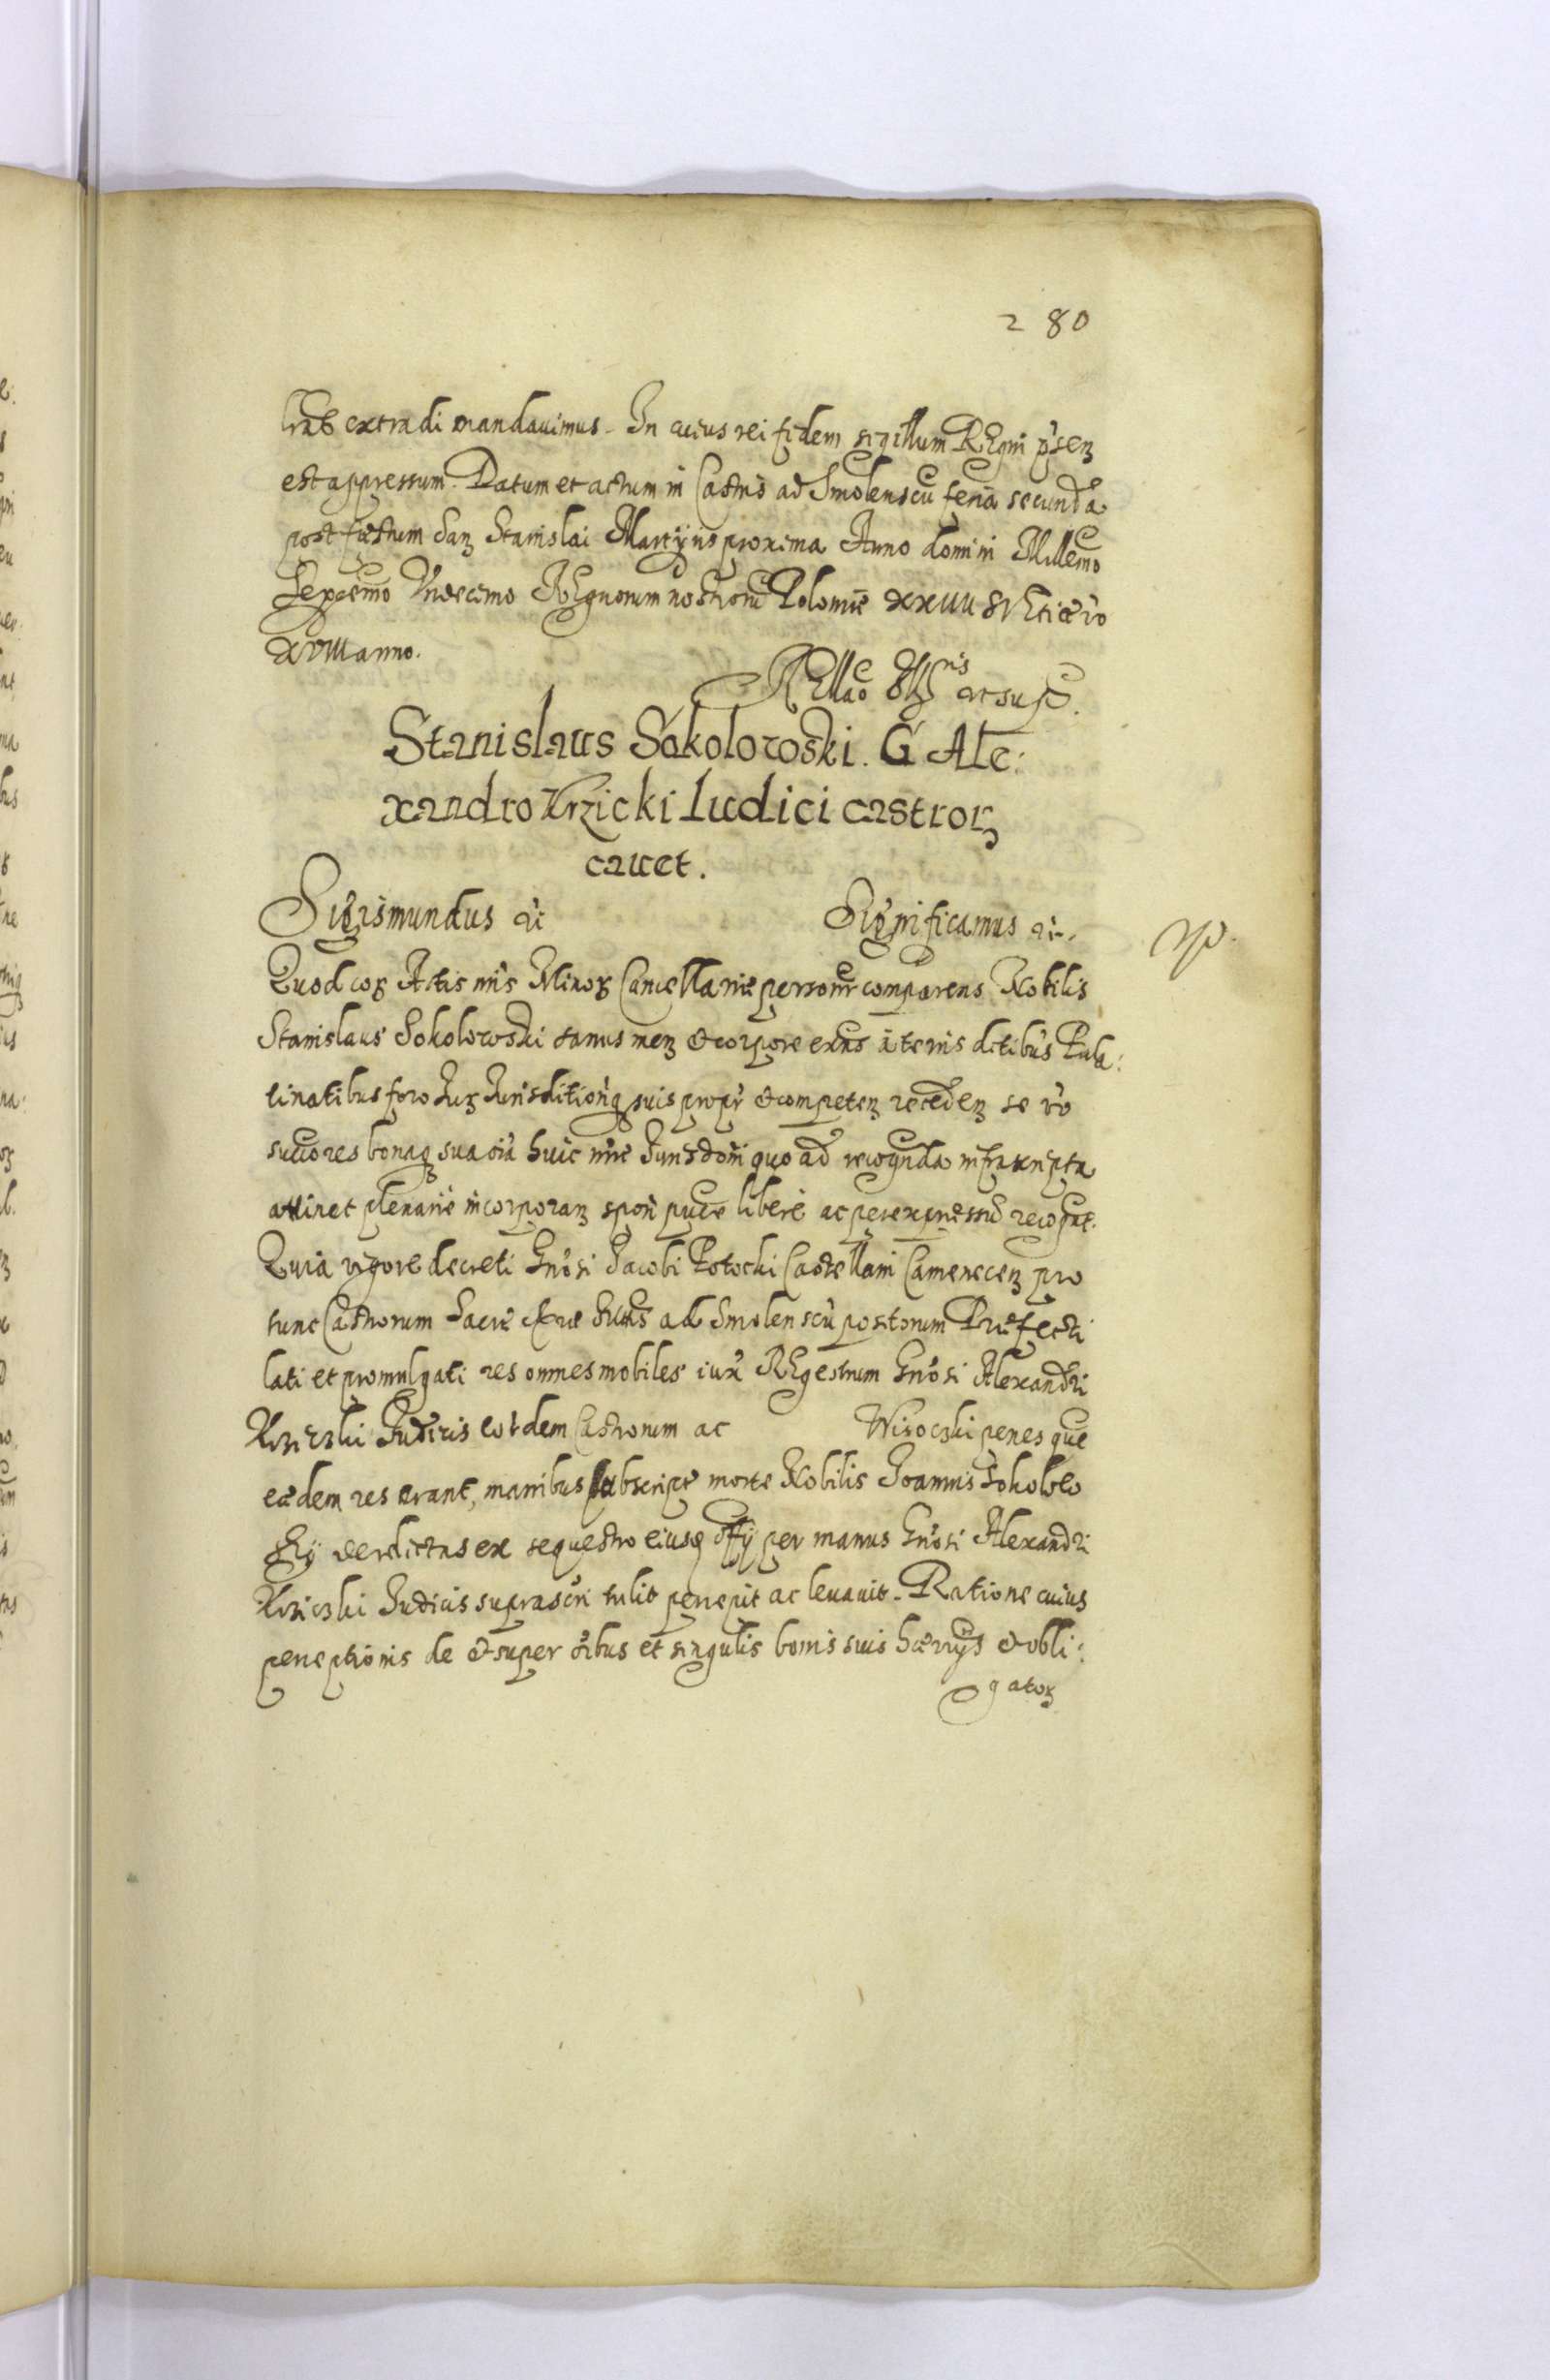 280
extradi mandauimus. In cuius rei fidem sigillum Regni pñsen
est appressum. Datum et actum in Castris ad Smolenscũ feria secunda
post festum San Stanislai Martyris proxima Anno domini Millemo
Sexcemo Vndecimo Regnorum nostrorũ Poloniæ XXIIII Suetiæ vo
XVIII anno.
R ut sup.
Stanislaus Sokolowski. G Ale:
xandro Krzicki Iudici castror
cauet.
Sigismundus &c Significamus &c.
Quod cor Actis nris Minor Cancellariæ personlr comparens Nobilis
Stanislaus Sokolowski sanus men & corpore exñs à terris ditibus Pala:
tinatibus foro Iurisditioniq suis propr & competen receden se vo
succores bonaq sua oia huic nræ Iurisdoni quo ad recognda infrascripta
attinet plenarie incorporan spon pure libere ac per expressũ recogt.
Quia vigore decreti Gnosi Iacobi Potocki Castellani Camenecen pro
tunc Castrorum Sacræ ad Smolenscũ positorum Præfecti
lati et promulgati res omnes mobiles iux Regestrum Gnosi Alexandri
Krziczki Iudicis eordem Castrorum ac Wisocski penes que
eædem res erant, manibus subscript morte Nobilis Joannis Sokolow
skÿ derelictas ex sequestro eiusq offÿ per manus Gnosi Alexandri
Krziczki Iudicis suprascri tulit percepit ac leuauit. Ratione cuius
perceptionis de & super oibus et singulis bonis suis hærrÿs & obli:
gator